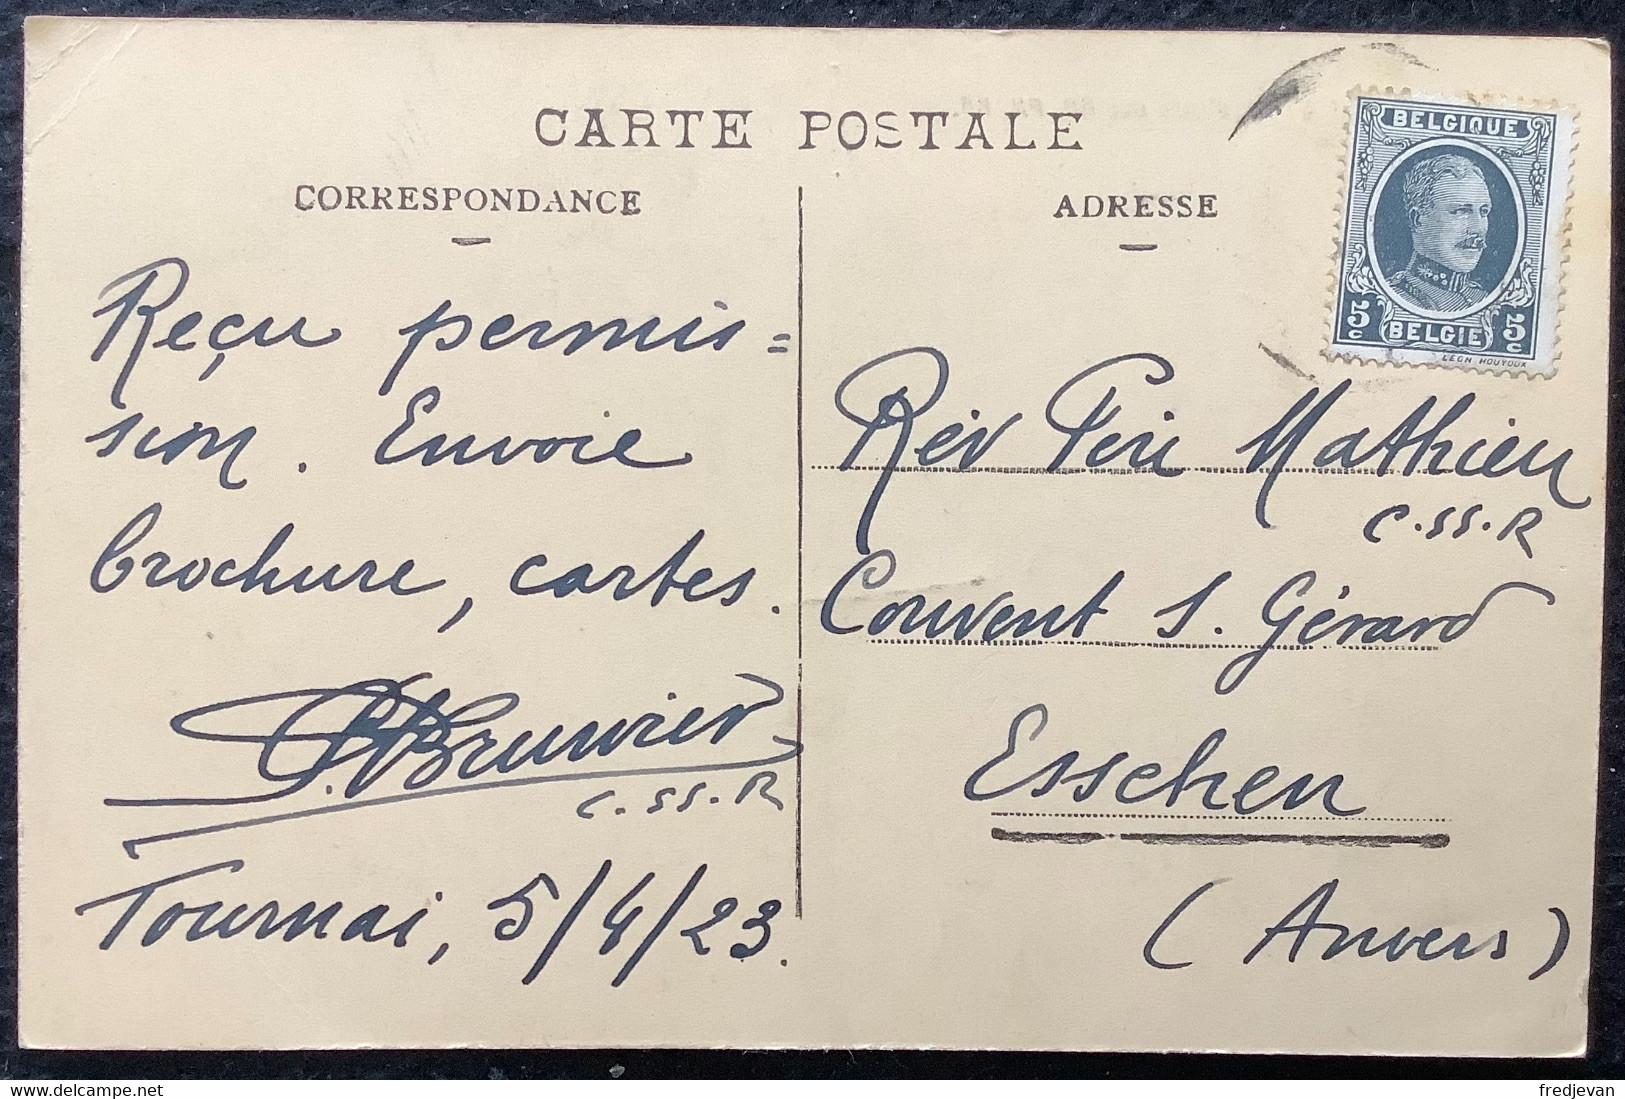 CARTE POSTALE
CORRESPONDANCE
ADRESSE
BELGIQUE
5c BELGIE 5c
LEON HOUYOUX
Reçu permis=
sion. Envoie
brochure, cartes.
Bruwier
C.SS.R
Tournai, 5/4/23.
Rév Père Mathieu
C.SS.R
Couvent S. Gérard
Esschen
(Anvers)
fredjevan